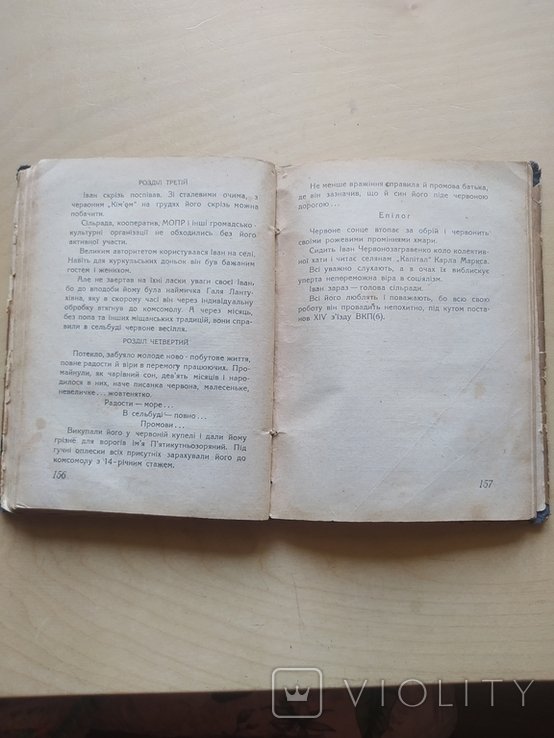 РОЗДІЛ ТРЕТІЙ
Іван скрізь поспівав. Зі сталевими очима, з
червоним „Кім'ом" на грудях його скрізь можна
побачити.
Сільрада, кооператив, МОПР і інші громадсько-
культурні організації не обходились без його
активної участи.
Великим авторитетом користувався Іван на селі.
Навіть для куркульських доньок він був бажаним
гостем і женихом.
Але не звертав на їхні ласки уваги своєї Іван,
бо до вподоби йому була наймичка Галя Ланту-
хівна, яку в скорому часі він через індивідуальну
обробку втягнув до комсомолу. А через місяць,
без попа та інших міщанських традицій, вони спра-
вили в сельбуді червоне весілля.
РОЗДІЛ ЧЕТВЕРТИЙ
Потекло, забуяло молоде ново-побутове життя,
повне радости й віри в перемогу працюючих. Про-
майнули, як чарівний сон, дев'ять місяців і наро-
дилося в них, наче писанка червона, малесеньке,
невеличке... жовтенятко.
Радости — море...
В сельбуді — повно...
Промови...
Викупали його у червоній купелі і дали йому
грізне для ворогів ім'я П'ятикутньозоряний. Під
гучні оплески всіх присутніх зарахували його до
комсомолу з 14-річним стажем.
156
Не менше вражіння справила й промова батька,
де він зазначив, що й син його піде червоною
дорогою...
Епілог
Червоне сонце втопає за обрій і червонить
своїми рожевими проміннями хмари.
Сидить Іван Червонозагравенко коло колектив-
ної хати і читає селянам „Капітал" Карла Маркса.
Всі уважно слухають, а в очах їх виблискує
уперта непереможна віра в соціялізм.
Іван зараз — голова сільради.
Всі його люблять і поважають, бо всю свою
роботу він провадить непохитно, під кутом поста-
нов XIV з'їзду ВКП(б).
157
VIOLITY